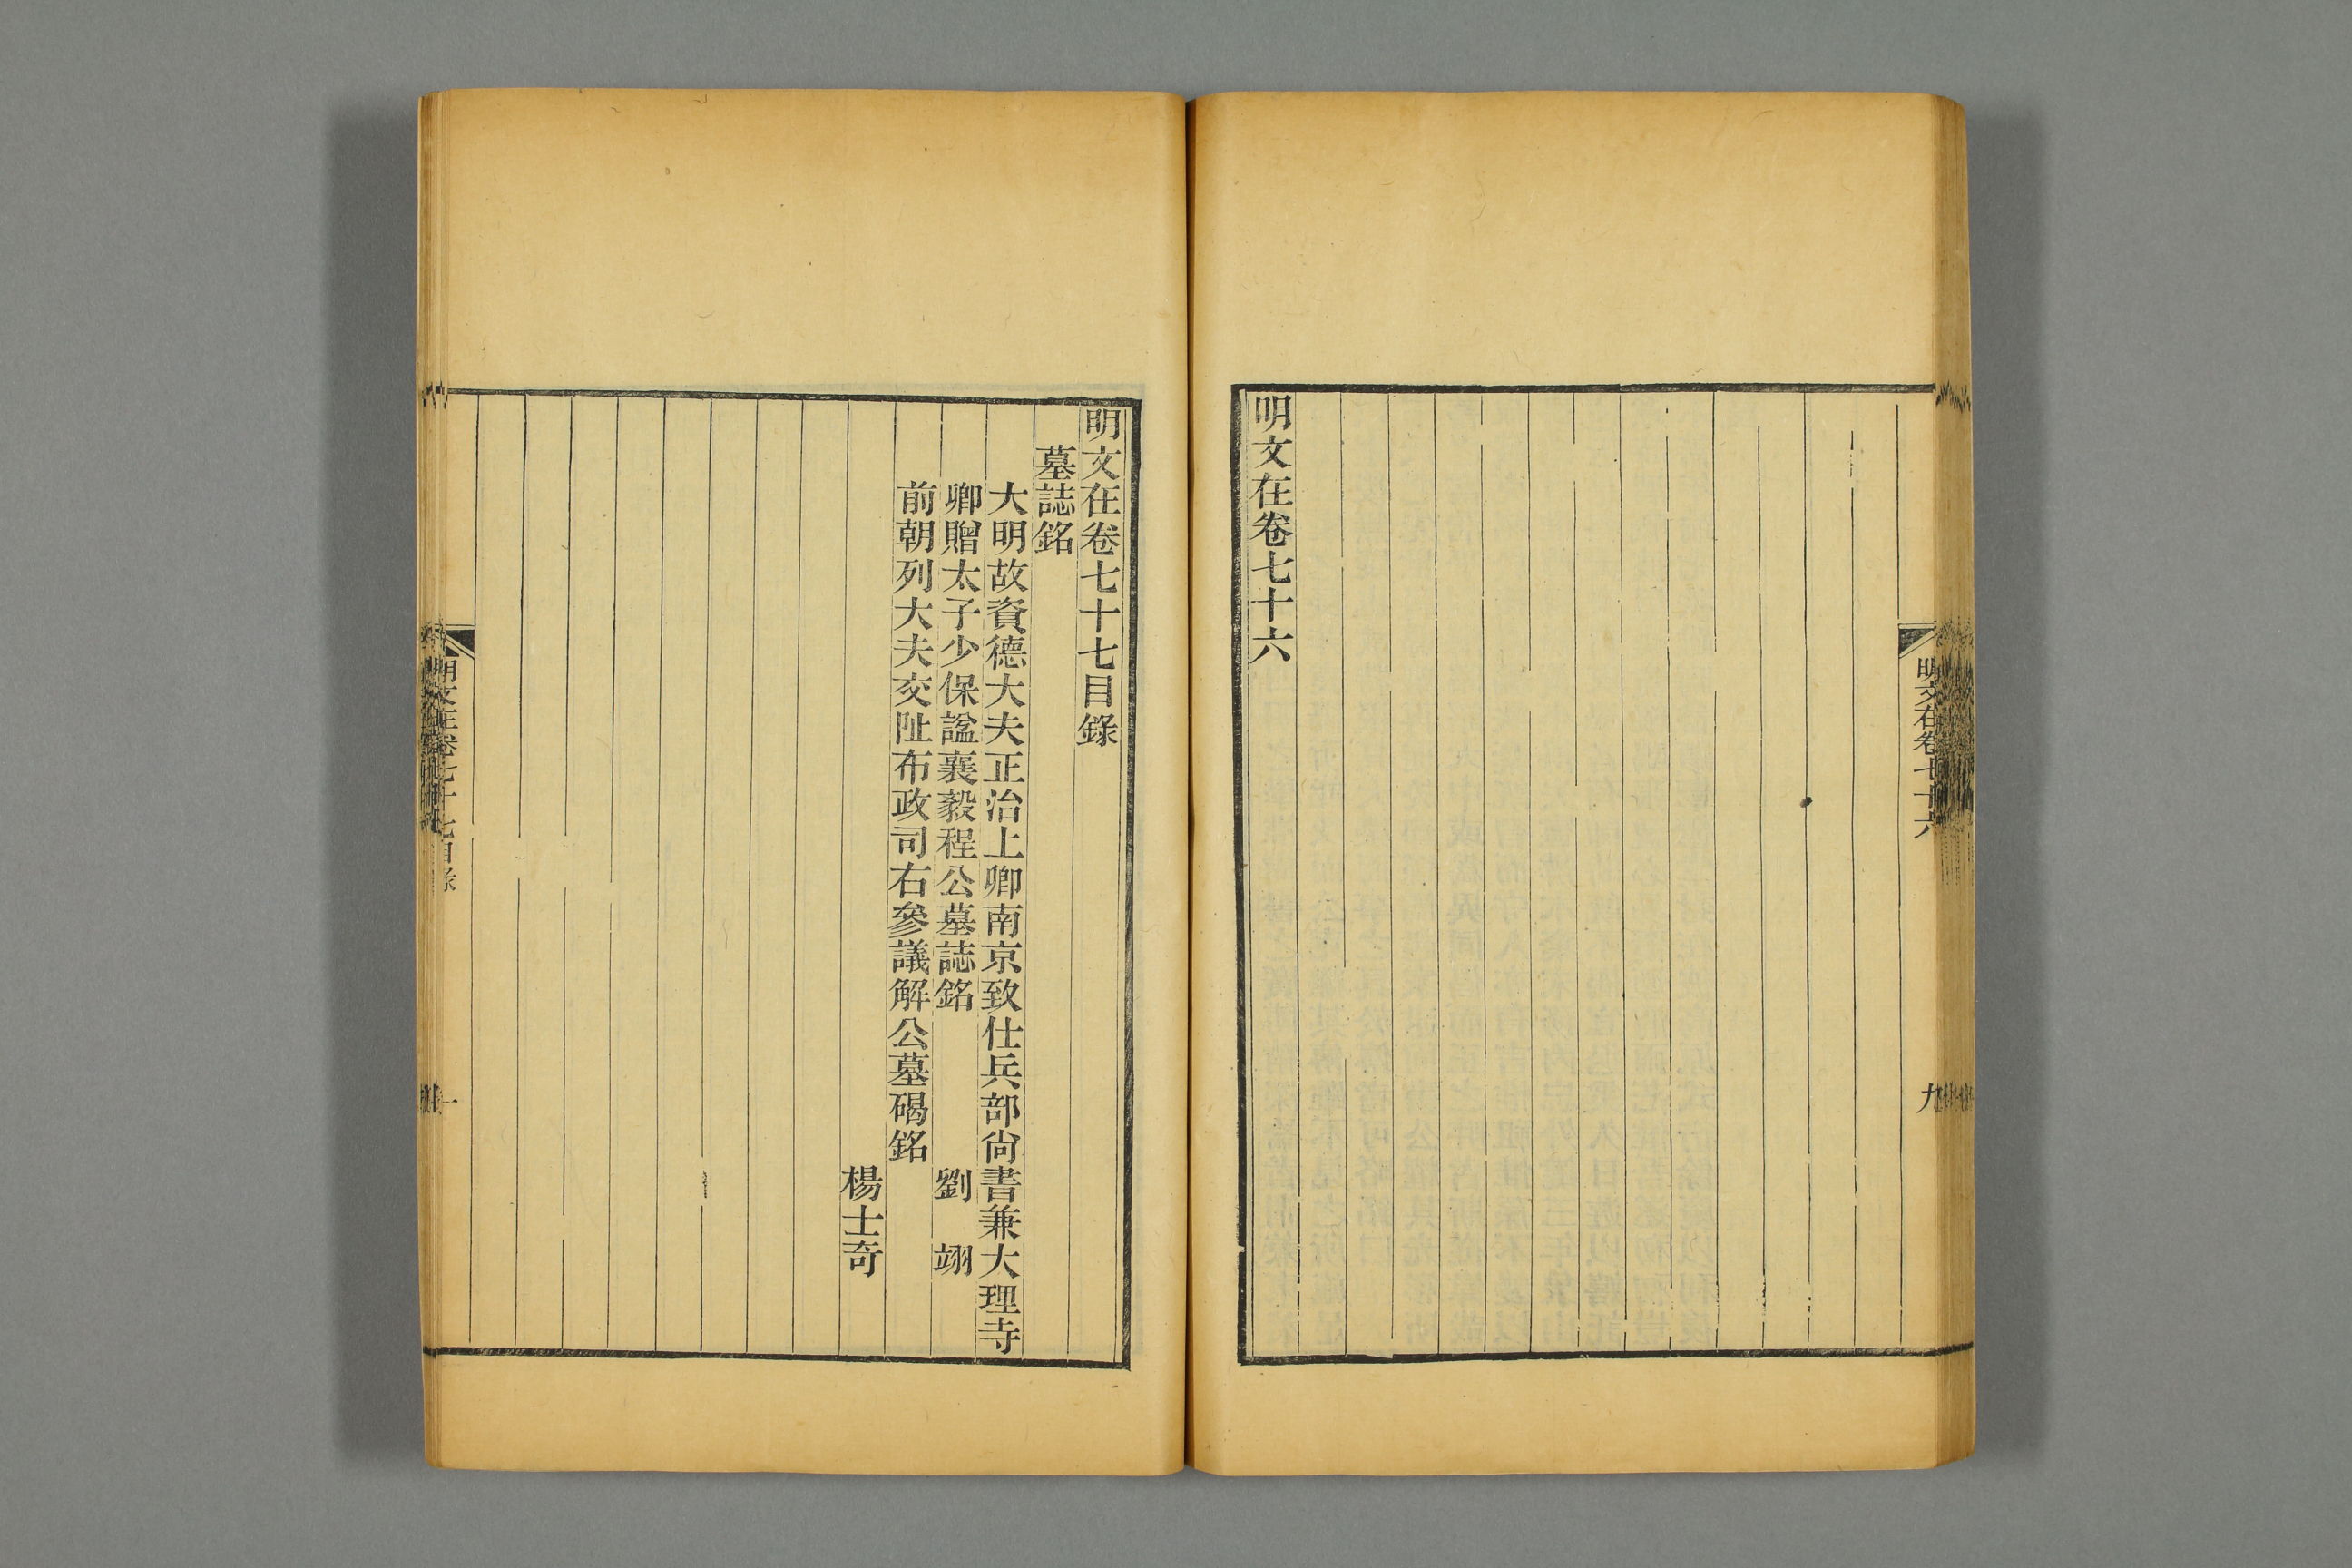 明文在卷七十六
九
明文在卷七十六
明文在卷七十七目錄
墓誌銘
大明故資德大夫正治上卿南京致仕兵部尙書兼大理寺
卿贈太子少保諡襄毅程公墓誌銘 劉 翊
前朝列大夫交阯布政司右參議解公墓碣銘
楊士奇
明文在卷七十七目錄
一